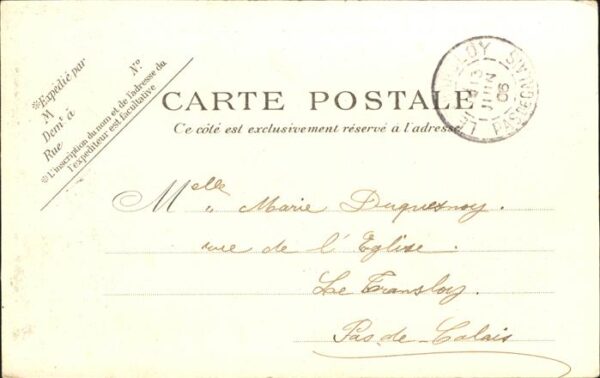 *Expédié par
M N°
Demt à
Rue
*L'inscription du nom et de l'adresse du
l'expéditeur est facultative
CARTE POSTALE
Ce côté est exclusivement réservé a l'adresse
JUIN
06
PAS DE C
Melle Marie Duquesnoy.
rue de l'Eglise.
Le Transloy.
Pas-de-Calais